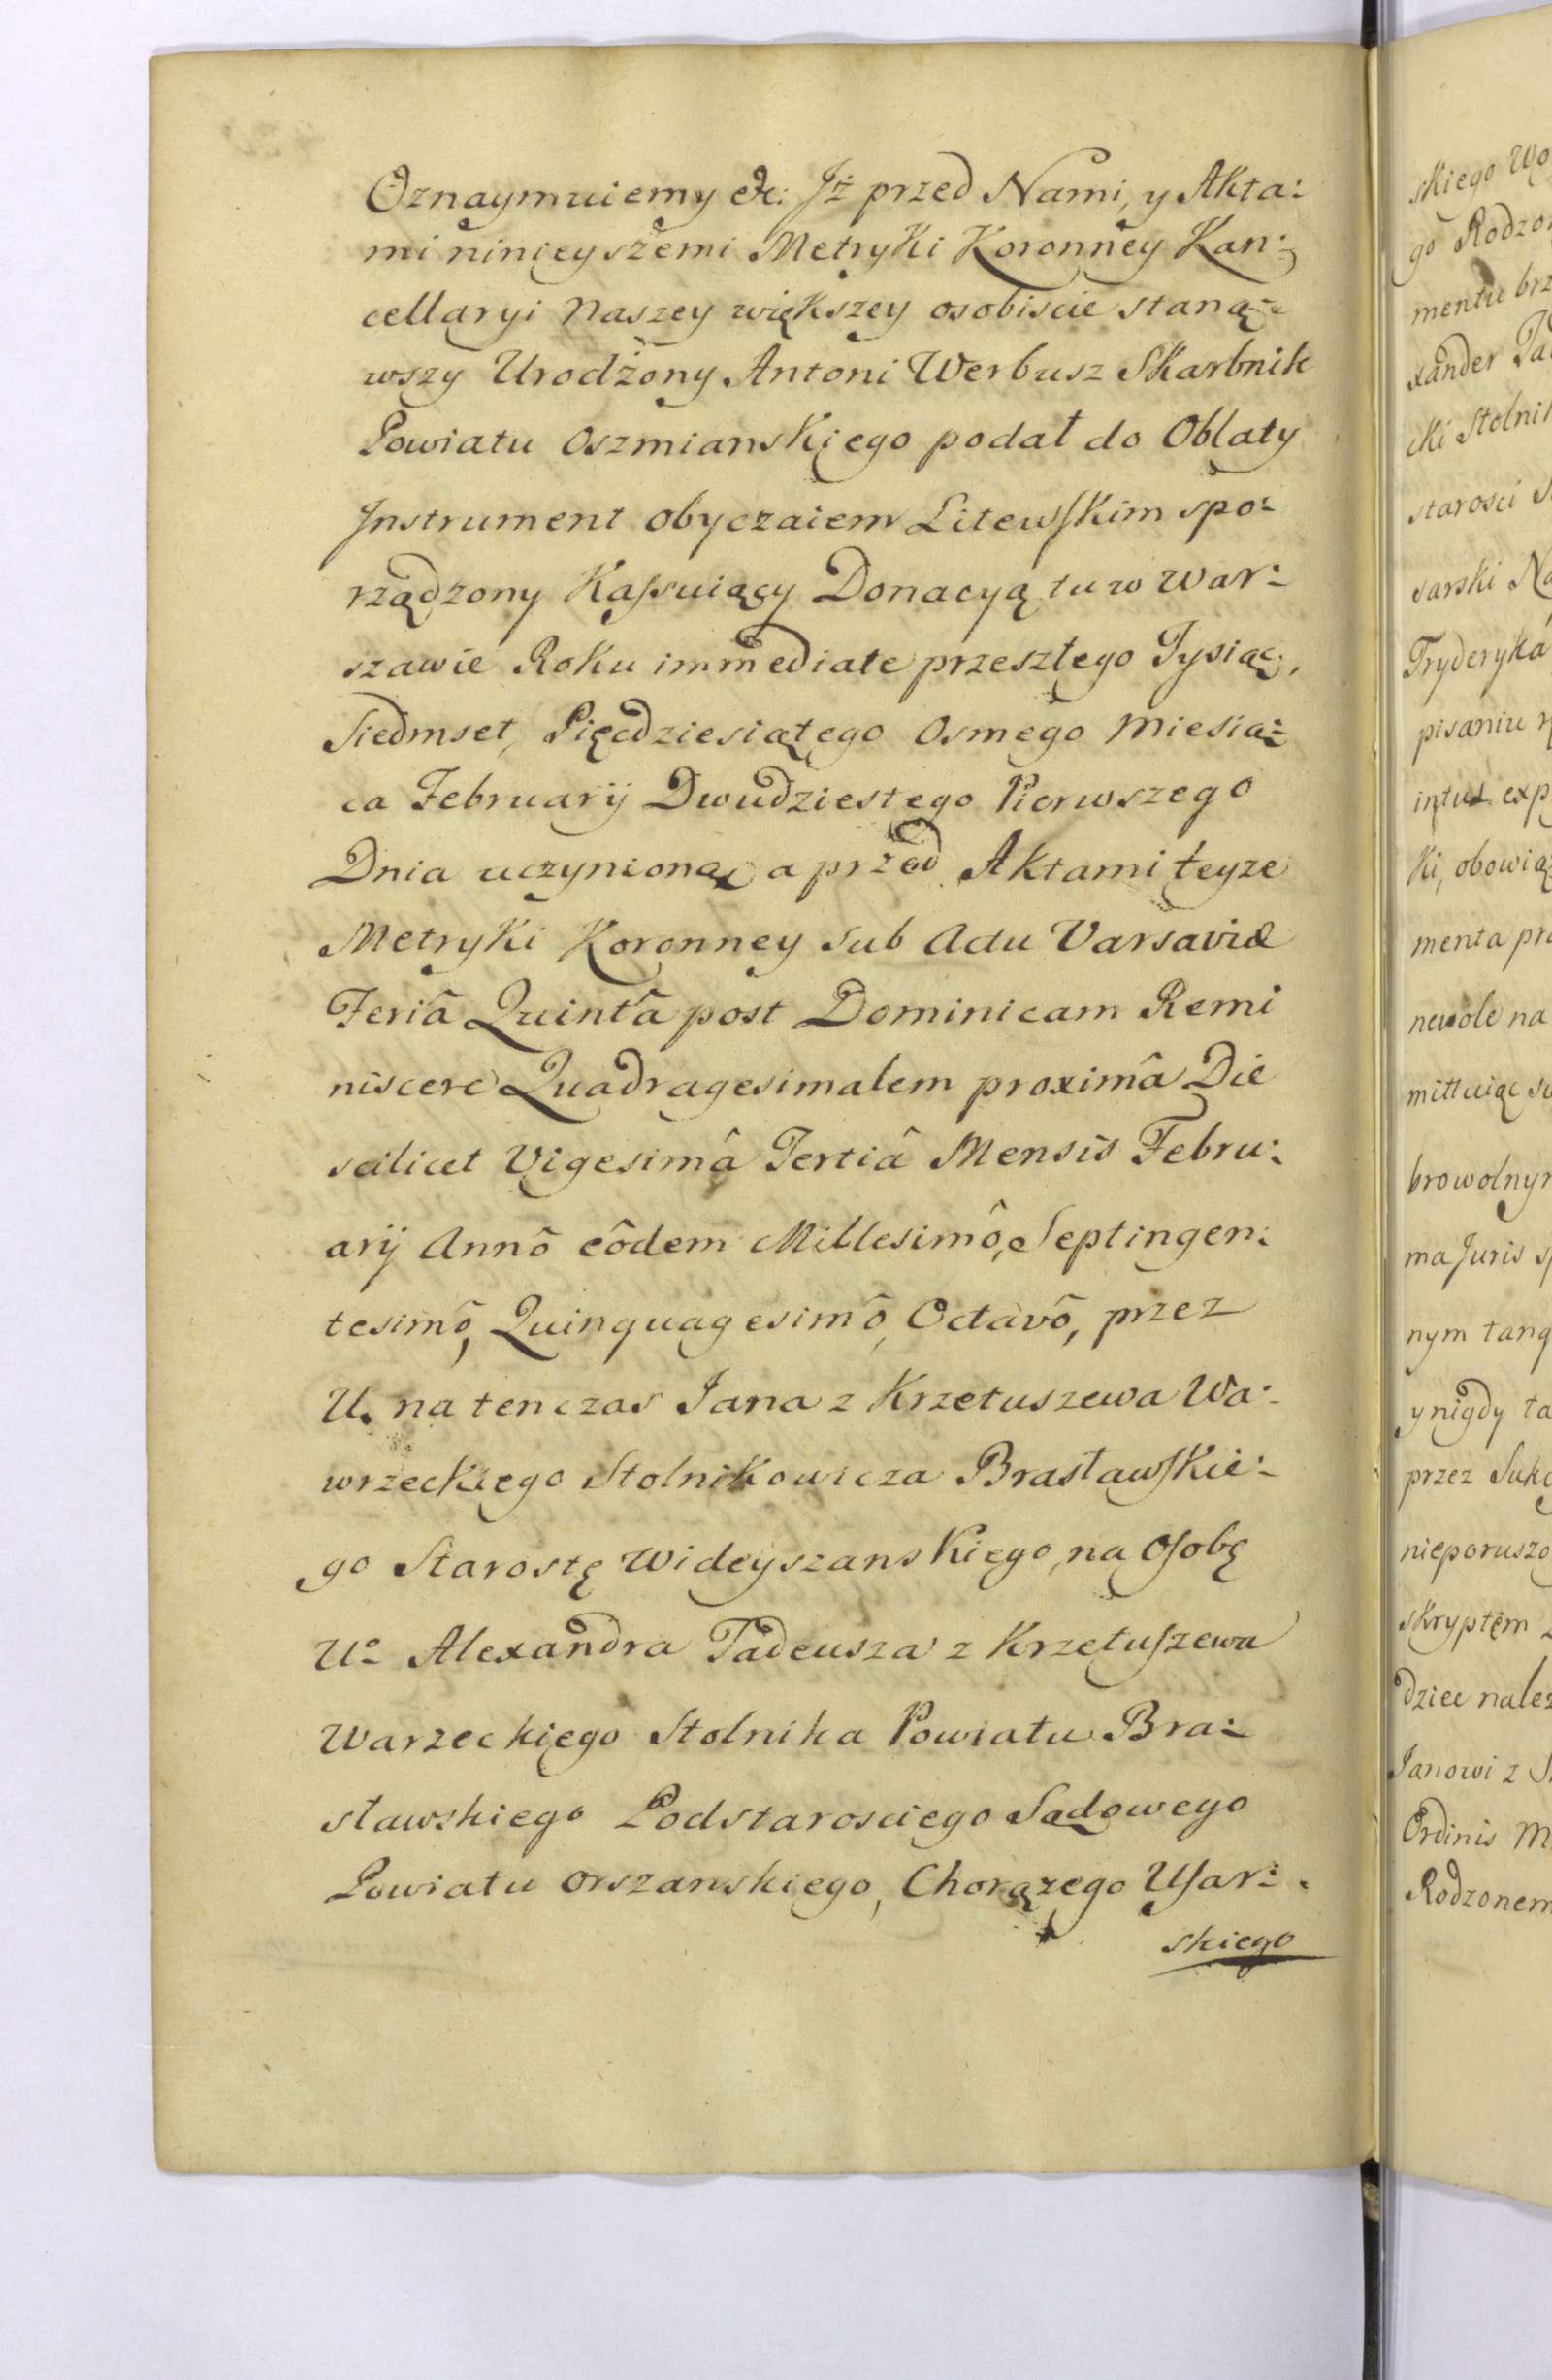 Oznaymuiemy &c: Jż przed Nami, y Akta:
mi ninieyszemi Metryki Koronney Kan:
cellaryi Naszey większey osobiscie staną:
wszy Urodzony Antoni Werbusz Skarbnik
Powiatu Oszmianskiego podał do Oblaty
Jnstrument obyczaiem Litewskim spo:
rządzony Kassuiący Donacyą tu w War:
szawie Roku immediate przeszłego Tysiąc,
Siedmset, Pięcdziesiątego Osmego Miesią:
ca Februarij Dwudziestego Pierwszego
Dnia uczynioną, a przed Aktami teyze
Metryki Koronney sub Actu Varsaviæ
Feriâ Quintâ post Dominicam Remi
niscere Quadragesimalem proximâ Die
scilicet Vigesimâ Tertiâ Mensis Febru:
arij Annô eôdem Millesimô, Septingen:
tesimô, Quinquagesimô, Octavô, przez
U. na tenczas Jana z Krzetuszewa Wa:
wrzeckiego Stolnikowicza Brasławskie:
go Starostę Wideyszanskiego, na Osobę
Uo Alexandra Tadeusza z Krzetuszewa
Warzeckiego Stolnika Powiatu Bra:
sławskiego Podstarosciego Sądowego
Powiatu Orszanskiego, Chorązego Usar:
skiego
skiego Wo
go Rodzo
mentu brz
xander Ta
cki Stolni
starosci S
sarski Na
Fryderyka
pisaniu
intus exp
ki, obowiąz
menta pr
newole na
mittuiąc su
browolnym
ma Juris s
nym tanq
y nigdy ta
przez Sukc
nieporuszo
skryptem
dziec nalez
Janowi z
Ordinis M
Rodzonem